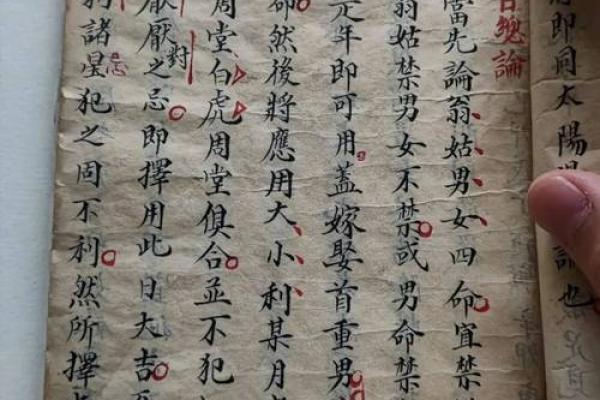 即同太陽論也
總論
當先論翁姑男女四命宜禁
翁姑禁男女不禁或男命禁
年即可用蓋嫁娶首重男
然後將應用大小利某月
周堂白虎周堂俱合並不犯
厭對之忌即擇用此日大吉
諸星忌犯之固不利然所擇